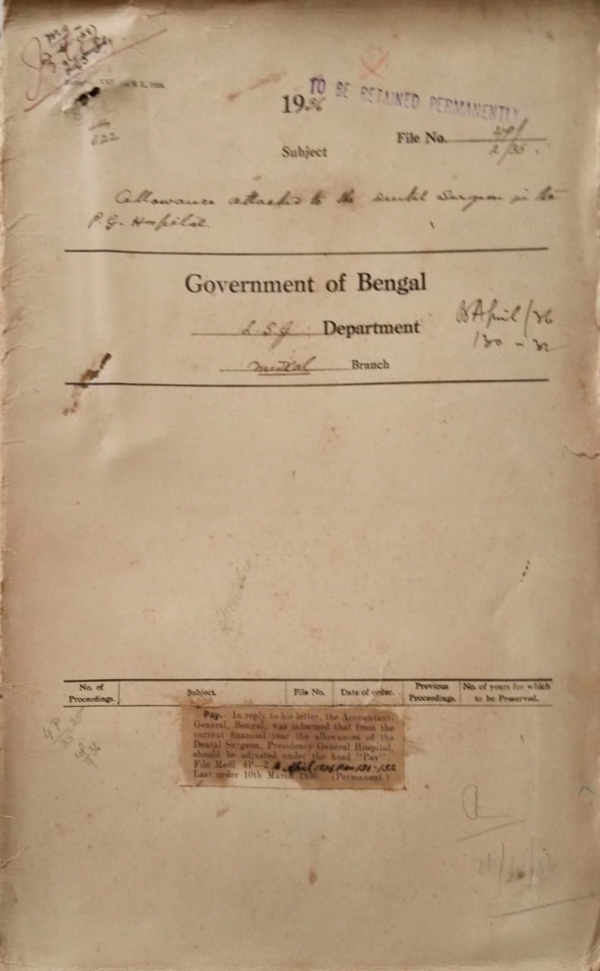 1936
TO BE RETAINED PERMANENTLY
File No. 4P/
2/36.
622
Subject
Allowances attached to the Dental Surgeon in the
P. G. Hospital.
Government of Bengal
L. S. G. Department
Medical Branch
B April/36
130 - 32
No. of Proceedings.	Subject.	File No.	Date of order.	Previous Proceedings.	No. of years for which to be Preserved.
Pay. In reply to his letter, the Accountant-
General, Bengal, was informed that from the
current financial year the allowances of the
Dental Surgeon, Presidency General Hospital,
should be adjusted under the head "Pay"
File Medl. 4P—2 B April 1936 Nos 130-132
Last order 10th March 1936. (Permanent.)